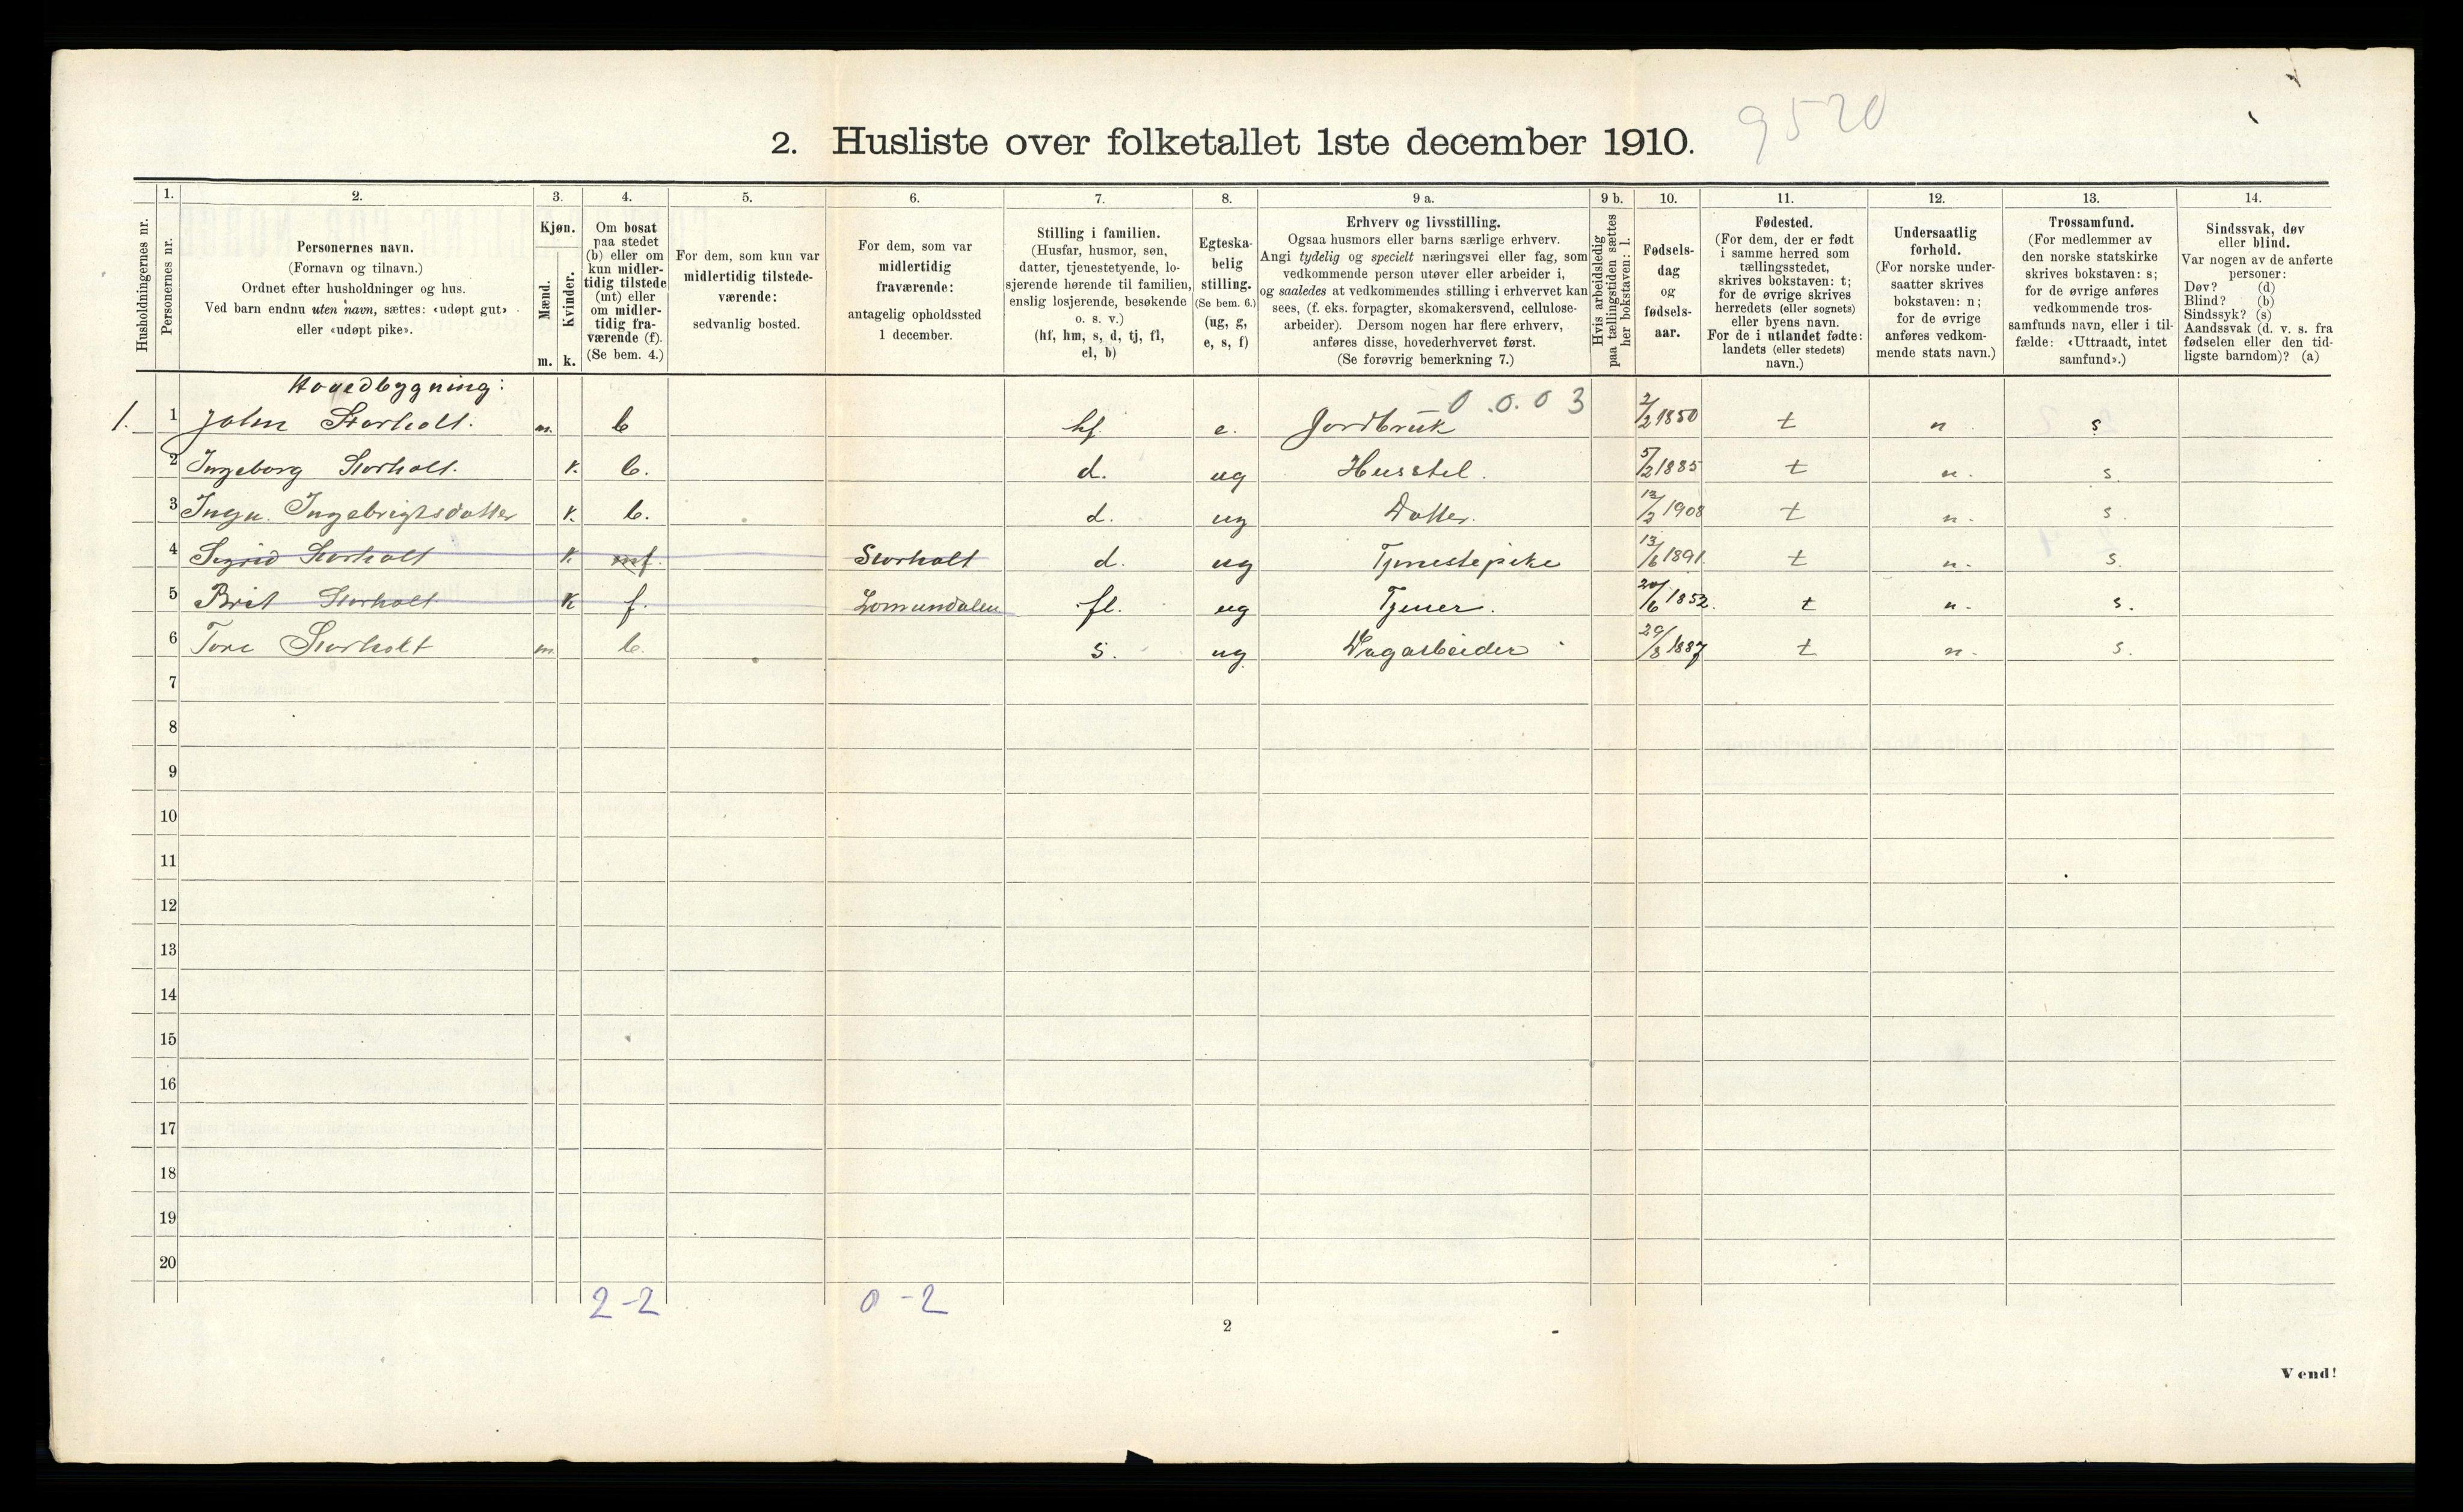 9520
2. Husliste over folketallet 1ste december 1910.
Husholdningernes nr.
1.
Personernes nr.
2.
Personernes navn.
(Fornavn og tilnavn.)
Ordnet efter husholdninger og hus.
Ved barn endnu uten navn, sættes: «udøpt gut»
eller «udøpt pike».
3.
Kjøn.
Mænd.
m.
Kvinder.
k.
4.
Om bosat
paa stedet
(b) eller om
kun midler-
tidig tilstede
(mt) eller
om midler-
tidig fra-
værende (f).
(Se bem. 4.)
5.
For dem, som kun var
midlertidig tilstede-
værende:
sedvanlig bosted.
6.
For dem, som var
midlertidig
fraværende:
antagelig opholdssted
1 december.
7.
Stilling i familien.
(Husfar, husmor, søn,
datter, tjenestetyende, lo-
sjerende hørende til familien,
enslig losjerende, besøkende
o. s. v.)
(hf, hm, s, d, tj, fl,
el, b)
8.
Egteska-
belig
stilling.
(Se bem. 6.)
(ug, g,
e, s, f)
9 a.
Erhverv og livsstilling.
Ogsaa husmors eller barns særlige erhverv.
Angi tydelig og specielt næringsvei eller fag, som
vedkommende person utøver eller arbeider i,
og saaledes at vedkommendes stilling i erhvervet kan
sees, (f. eks. forpagter, skomakersvend, cellulose-
arbeider). Dersom nogen har flere erhverv,
anføres disse, hovederhvervet først.
(Se forøvrig bemerkning 7.)
9 b.
Hvis arbeidsledig
paa tællingstiden sættes
her bokstaven: l.
10.
Fødsels-
dag
og
fødsels-
aar.
11.
Fødested.
(For dem, der er født
i samme herred som
tællingsstedet,
skrives bokstaven: t;
for de øvrige skrives
herredets (eller sognets)
eller byens navn.
For de i utlandet fødte:
landets (eller stedets)
navn.)
12.
Undersaatlig
forhold.
(For norske under-
saatter skrives
bokstaven: n;
for de øvrige
anføres vedkom-
mende stats navn.)
13.
Trossamfund.
(For medlemmer av
den norske statskirke
skrives bokstaven: s;
for de øvrige anføres
vedkommende tros-
samfunds navn, eller i til-
fælde: «Uttraadt, intet
samfund».)
14.
Sindssvak, døv
eller blind.
Var nogen av de anførte
personer:
Døv? (d)
Blind? (b)
Sindssyk? (s)
Aandssvak (d. v. s. fra
fødselen eller den tid-
ligste barndom)? (a)
Hovedbygning:
0.0.03
1. 1 John Storholt. m. b hf. e. Jordbruk 2/2 1850 t n s
2 Ingeborg Storholt. k. b. d. ug Husstel. 5/2 1885 t n. s.
3 Ingebrigtsdatter k. b. d. ug Datter. 1908 t n. s.
4 Sigrid Storholt k mf. Storholt d. ug Tjenestepike 13/6 1891. t n. s.
5 Brit Storholt k f. Lomundalen fl. ug Tjener. 20/6 1852. t n. s.
6 Tore Storholt m b. s. ug Dagarbeider 29/8 1887 t n. s.
7
8
9
10
11
12
13
14
15
16
17
18
19
20
2-2 0-2
2
Vend!